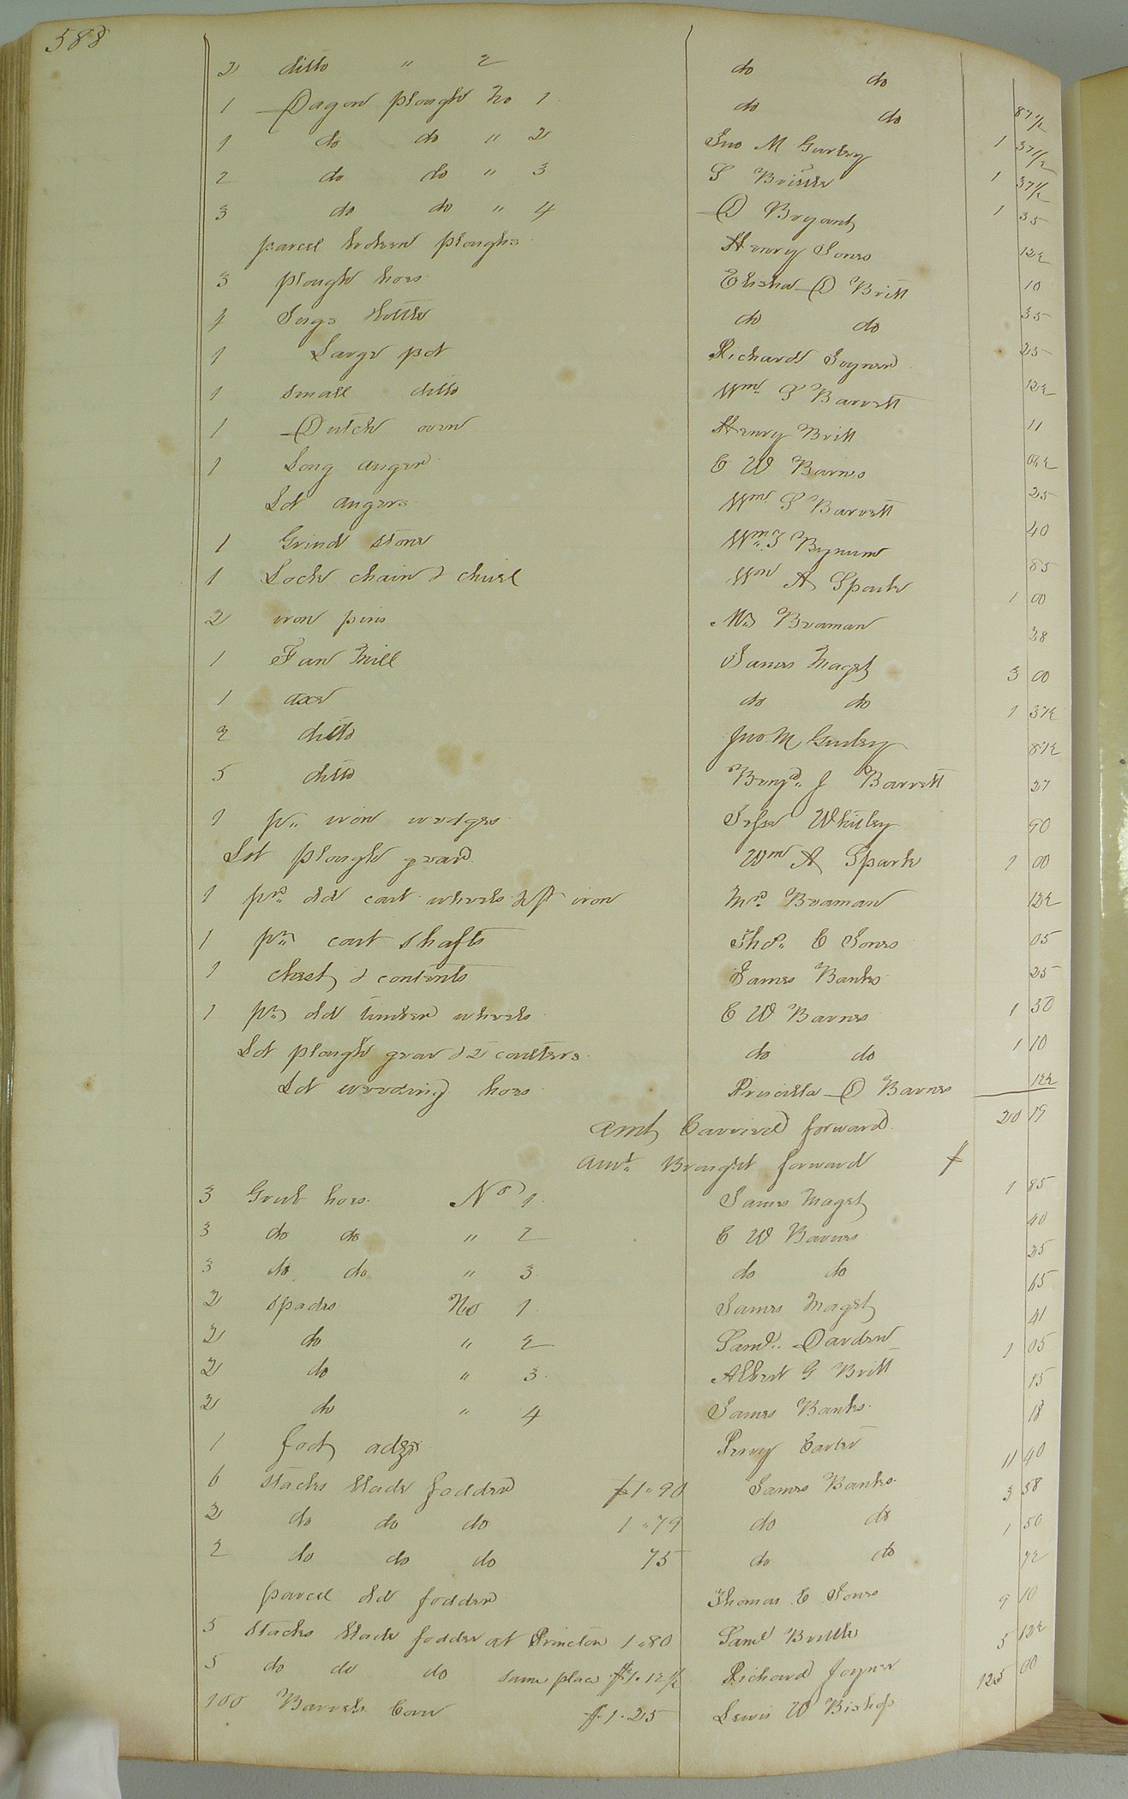 588
2 ditto " 2 do do 87 1/2
1 Dagon plough No 1 do do 1 37 1/2
1 do do " 2 Jno M Gurley 1 37 1/2
2 do do " 3 S Brittle 1 35
3 do do " 4 D Bryant 12 1/2
parcel broken ploughs Henry Jones 10
3 plough hoes Elisha D Britt 35
1 Jugs kettle do do 25
1 Large pot Richard Joyner 12 1/2
1 small ditto Wm S Barrett 11
1 Dutch oven Henry Britt 06 1/2
1 Long auger E W Barnes 25
Lot augers Wm S Barrett 40
1 Grind stone Wm J Bynum 85
1 Lock chain & chisel Wm A Spark 1 00
2 iron pins Mrs Braman 38
1 Fan Mill James Maget 3 00
1 axe do do 1 37 1/2
2 ditto Jno M Gurley 87 1/2
5 ditto Benjn. J Barrett 27
1 pr. iron wedges Jesse Whitley 90
Lot plough gear Wm A Spark 1 00
1 pr. old cart wheels iron Mrs. Braman 12 1/2
1 pr. cart shafts Thos. E Jones 05
1 chest & contents James Banks 25
1 pr. old timber wheels E W Barnes 1 50
Lot plough gear & 2 coulters do do 1 10
Lot weeding hoes Priscilla D Barnes 12 1/2
Amt Carried forward 20 19
Amt. Brought forward $
3 Grub hoes No 1 James Maget 1 85
3 do do " 2 E W Barnes 40
3 do do " 3 do do 25
2 spades No 1 James Maget 65
2 do " 2 Saml. Darden 41
2 do " 3 Albert G Britt 1 05
2 do " 4 James Banks 15
1 foot adze Percy Carter 18
6 stacks blade fodder $1.90 James Banks 11 40
2 do do do 1.79 do do 3 58
2 do do do 75 do do 1 50
parcel old fodder Thomas E Jones 72
5 stacks blade fodder at Princton 1.80 Saml Brittle 9 10
5 do do do same place $1.12 1/2 Richard Joyner 5 12 1/2
100 Barrels Corn $1.25 Lewis W Bishop 125 00